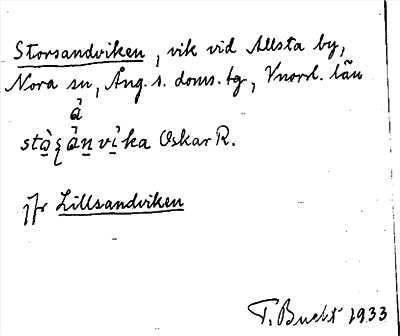 Storsandviken, vik vid Allsta by,
Nora sn, Ång. s. doms. tg, Vnorrl. län
Oskar R.
jfr Lillsandviken
T. Bucht 1933